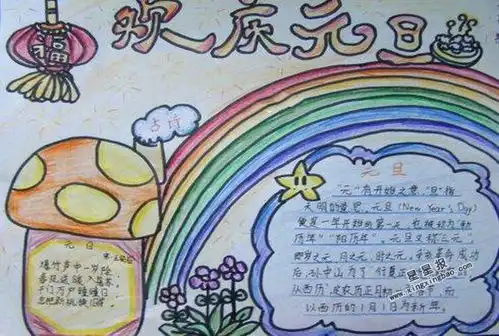 欢庆元旦
福
古诗
元旦
"元"有开始之意，"旦"指
天明的意思。元旦（New Year's Day）
便是一年开始的第一天，也被称为"新
历年""阳历年"。元旦又称"三元"，
即岁之元、月之元、时之元。
后，孙中山为了
以西历的1月1日为新年。
元日
宋 王安石
爆竹声中一岁除
春风送暖入屠苏
千门万户曈曈日
总把新桃换旧符
星星报
www.xingxingbao.com